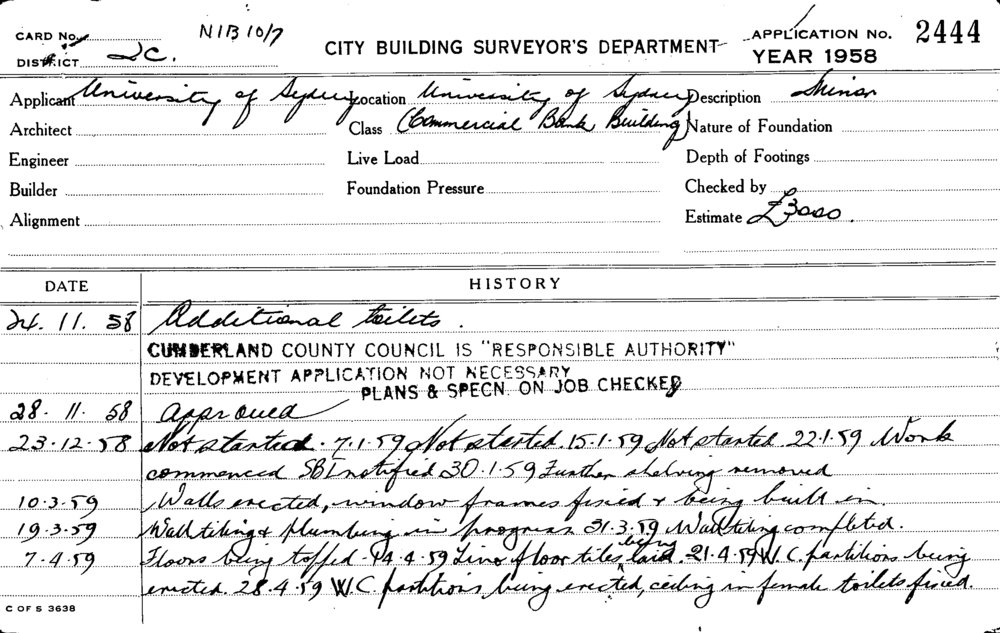 CARD No. N1B 10/7 CITY BUILDING SURVEYOR'S DEPARTMENT APPLICATION No. 2444
DISTRICT 2C. YEAR 1958
Applicant University of Sydney Location University of Sydney Description Minor
Architect Class (Commercial Bank Building) Nature of Foundation
Engineer Live Load Depth of Footings
Builder Foundation Pressure Checked by
Alignment Estimate £3000.
DATE HISTORY
24. 11. 58 Additional toilets.
CUMBERLAND COUNTY COUNCIL IS "RESPONSIBLE AUTHORITY"
DEVELOPMENT APPLICATION NOT NECESSARY
PLANS & SPECN. ON JOB CHECKED
28. 11. 58 Approved
23.12.58 Not started. 7.1.59 Not started 15.1.59 Not started 22.1.59 Work
commenced SBI notified 30.1.59 Further shelving removed
10.3.59 Walls erected, window frames fixed & being built in
19.3.59 Wall tiling & plumbing in progress 31.3.59 Wall tiling completed.
7.4.59 Floors being topped 14.4.59 Lino floor tiles being laid. 21.4.59 W.C. partitions being
erected. 28.4.59 W.C. partitions being erected, ceiling in female toilets fixed.
C OF S 3638